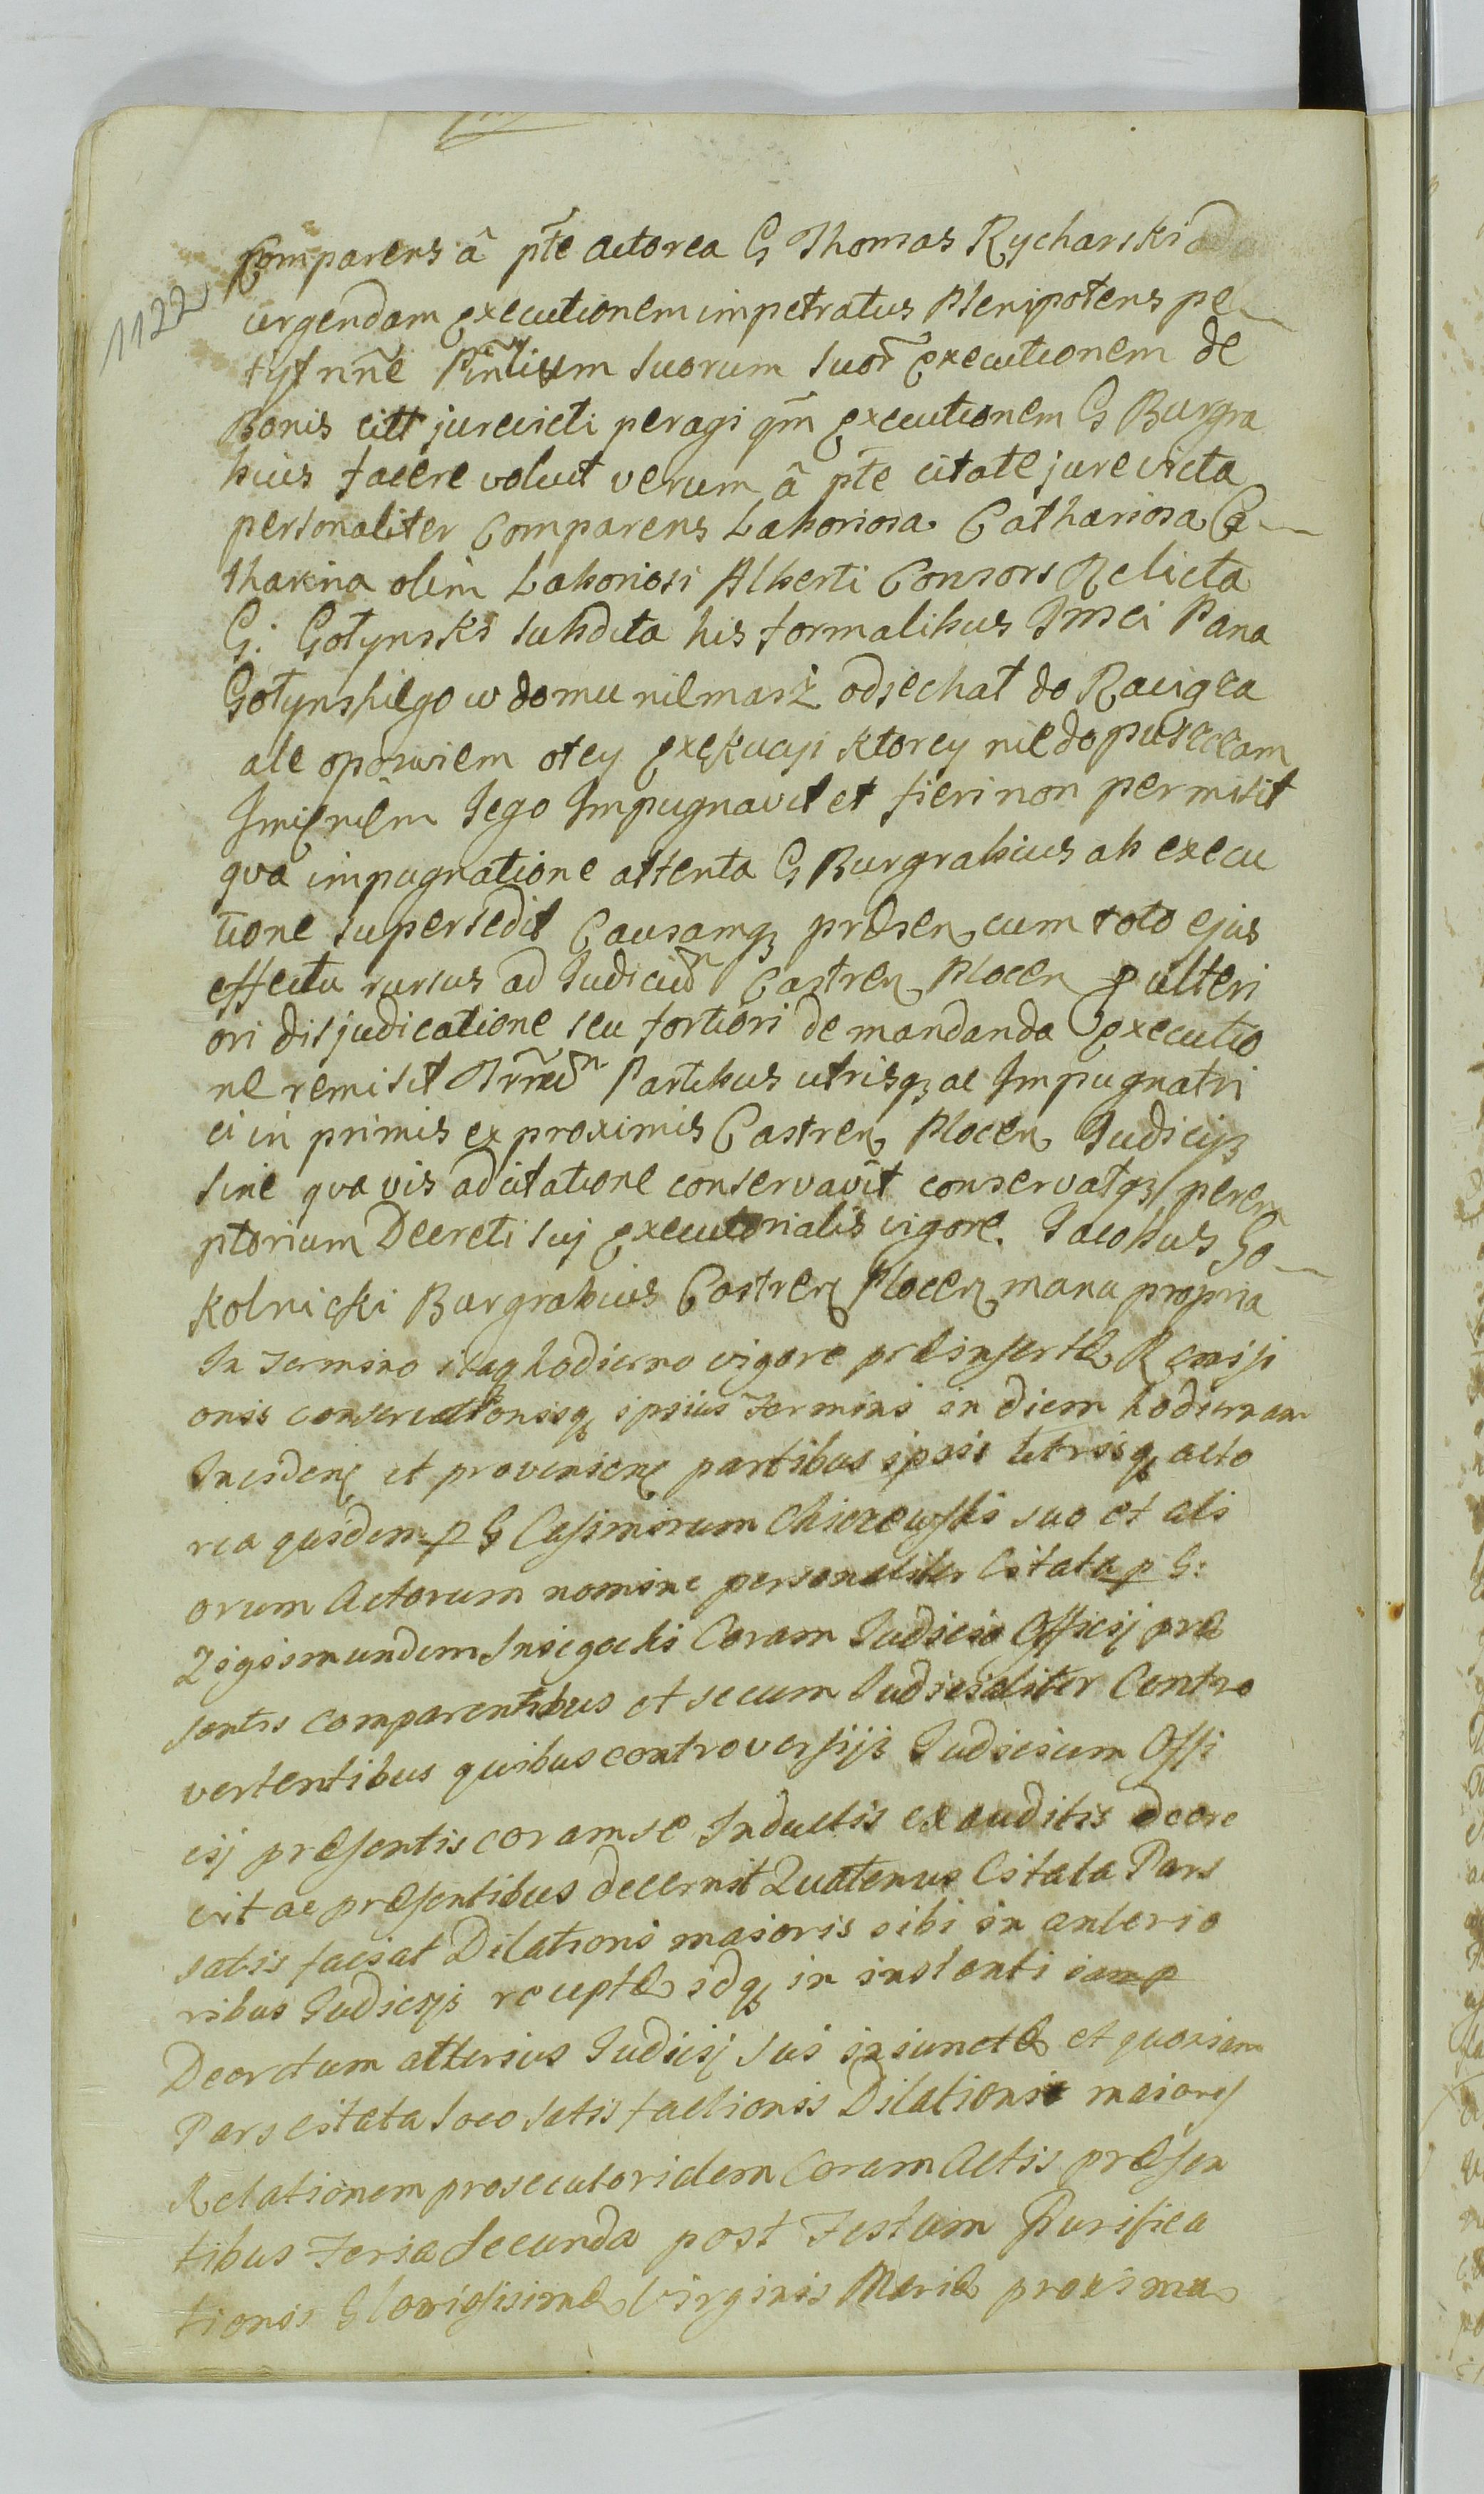 1122
Comparens â pt̃e actorea G Thomas Rycharski ad
urgendam executionem impetratus Plenipotens pe
tyt nñe Prinlium suorum suor̃ executionem de
Bonis citt jurevicti peragi qm̃ executionem G Burgra
bius facere voluit verum â pt̃e citate jurevicta
personaliter Comparens Laboriosa Cathariosa Ca
tharina olim Laboriosi Alberti Consors Relicta
G: Gołynski subdita his formalibus Jmci Pana
Gołynskiego w domu niemasz odjechał do Raciąza
ale opowiem otey exękucyi ktorey niedopuszczam
Jmięniem Jego Impugnavit et fieri non permisit
qva impugnatione attenta G Burgrabius ab execu
tione supersedit Causamqz præsen cum toto ejus
effectu rursus ad Judiciũ Castren Plocen p ulteri
ori disjudicatione seu fortiori demandanda Executio
ne remisit Trm̃nũ Partibus utrisqz ac Impugnatri
ci in primis ex proximis Castren Plocen Judicijs
sine qvavis adcitatione conservavit conservatqz perem
ptorium Decreti sui executorialis vigore. Jacobus So
kolnicki Burgrabius Castren Plocen manu propria
In Termino itaq hodierno vigore præinsertæ Remissi
onis conservationisq ipsius Termini in diem hodiernam
Inciden et provenien partibus ipsis Utrisq acto
rea quidem p G Casimirum Chicrewski suo et ali
orum Actorum nomine personaliter Citata p G:
Zigismundum Sniegocki Coram Judicio Officij præ
sentis comparentibus et secum Judicialiter Contro
vertentibus quibus controversijs Judicium Offi
cij præsentis coram se Inductis exauditis decre
vit ac præsentibus decernit Quatenus Citata Pars
satis faciat Dilationi maioris sibi in anterio
ribus Judicijs receptæ idq in instanti iam p
Decretum alterius Judicij sui iniunctæ et quoniam
Pars citata loco satis factionis Dilationis maioris
Relationem prosecutorialem Coram Actis præsen
tibus Feria Secunda post Festum Purifica
tionis Gloriosissimæ Virginis Mariæ proxima